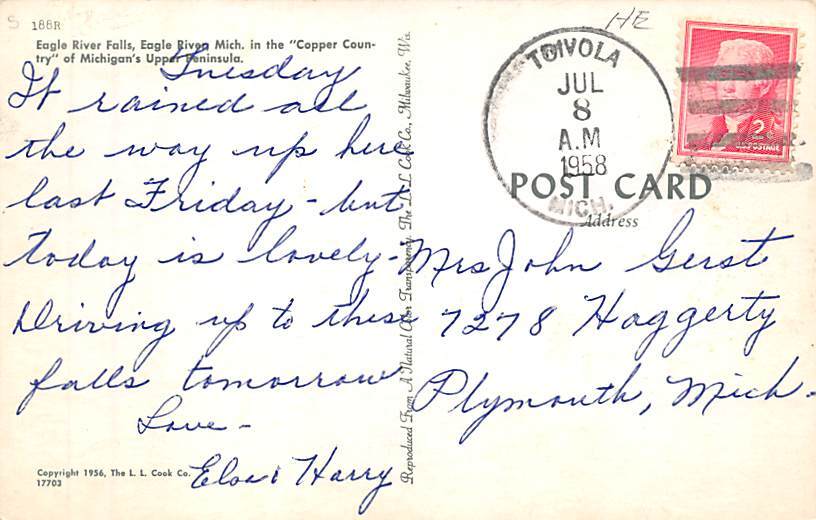 188R
HE
Eagle River Falls, Eagle River, Mich. in the "Copper Coun-
try" of Michigan's Upper Peninsula.
Tuesday
It rained all
the way up here
last Friday - but
today is lovely -
Driving up to these
falls tomorrow
Love -
Harry
Copyright 1956, The L. L. Cook Co.
17703
Reproduced From A Natural Color Transparency, The L. L. Cook Co., Milwaukee, Wis.
TOIVOLA
JUL
8
A.M
1958
MICH.
2¢
U.S. POSTAGE
POST CARD
Address
Mrs John Gerst
7278 Haggerty
Plymouth, Mich.